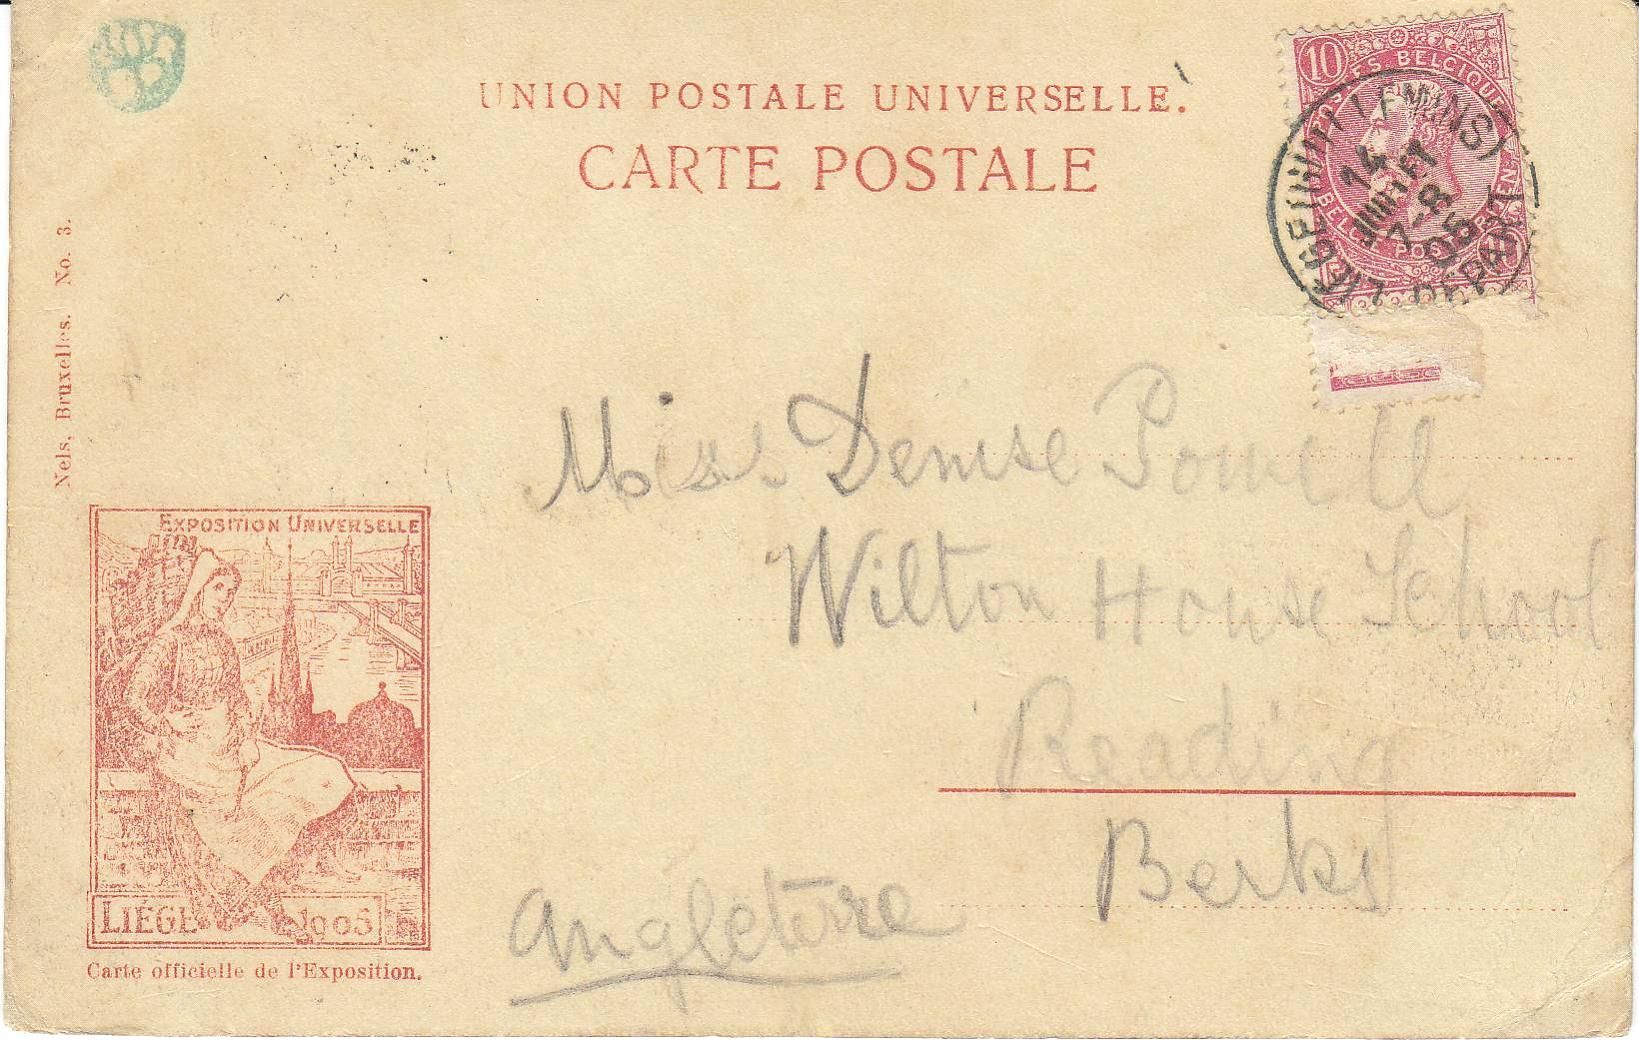 UNION POSTALE UNIVERSELLE.
CARTE POSTALE
10
POSTES BELGIQUE
BELGIE POSTERIJEN
LIÈGE (GUILLEMINS)
14
JUILLET
7-8
05
DÉPART
Nels, Bruxelles. No. 3.
Miss Denise Powell
Wilton House School
Reading
Berks
Angleterre
EXPOSITION UNIVERSELLE
LIÉGE 1905
Carte officielle de l'Exposition.